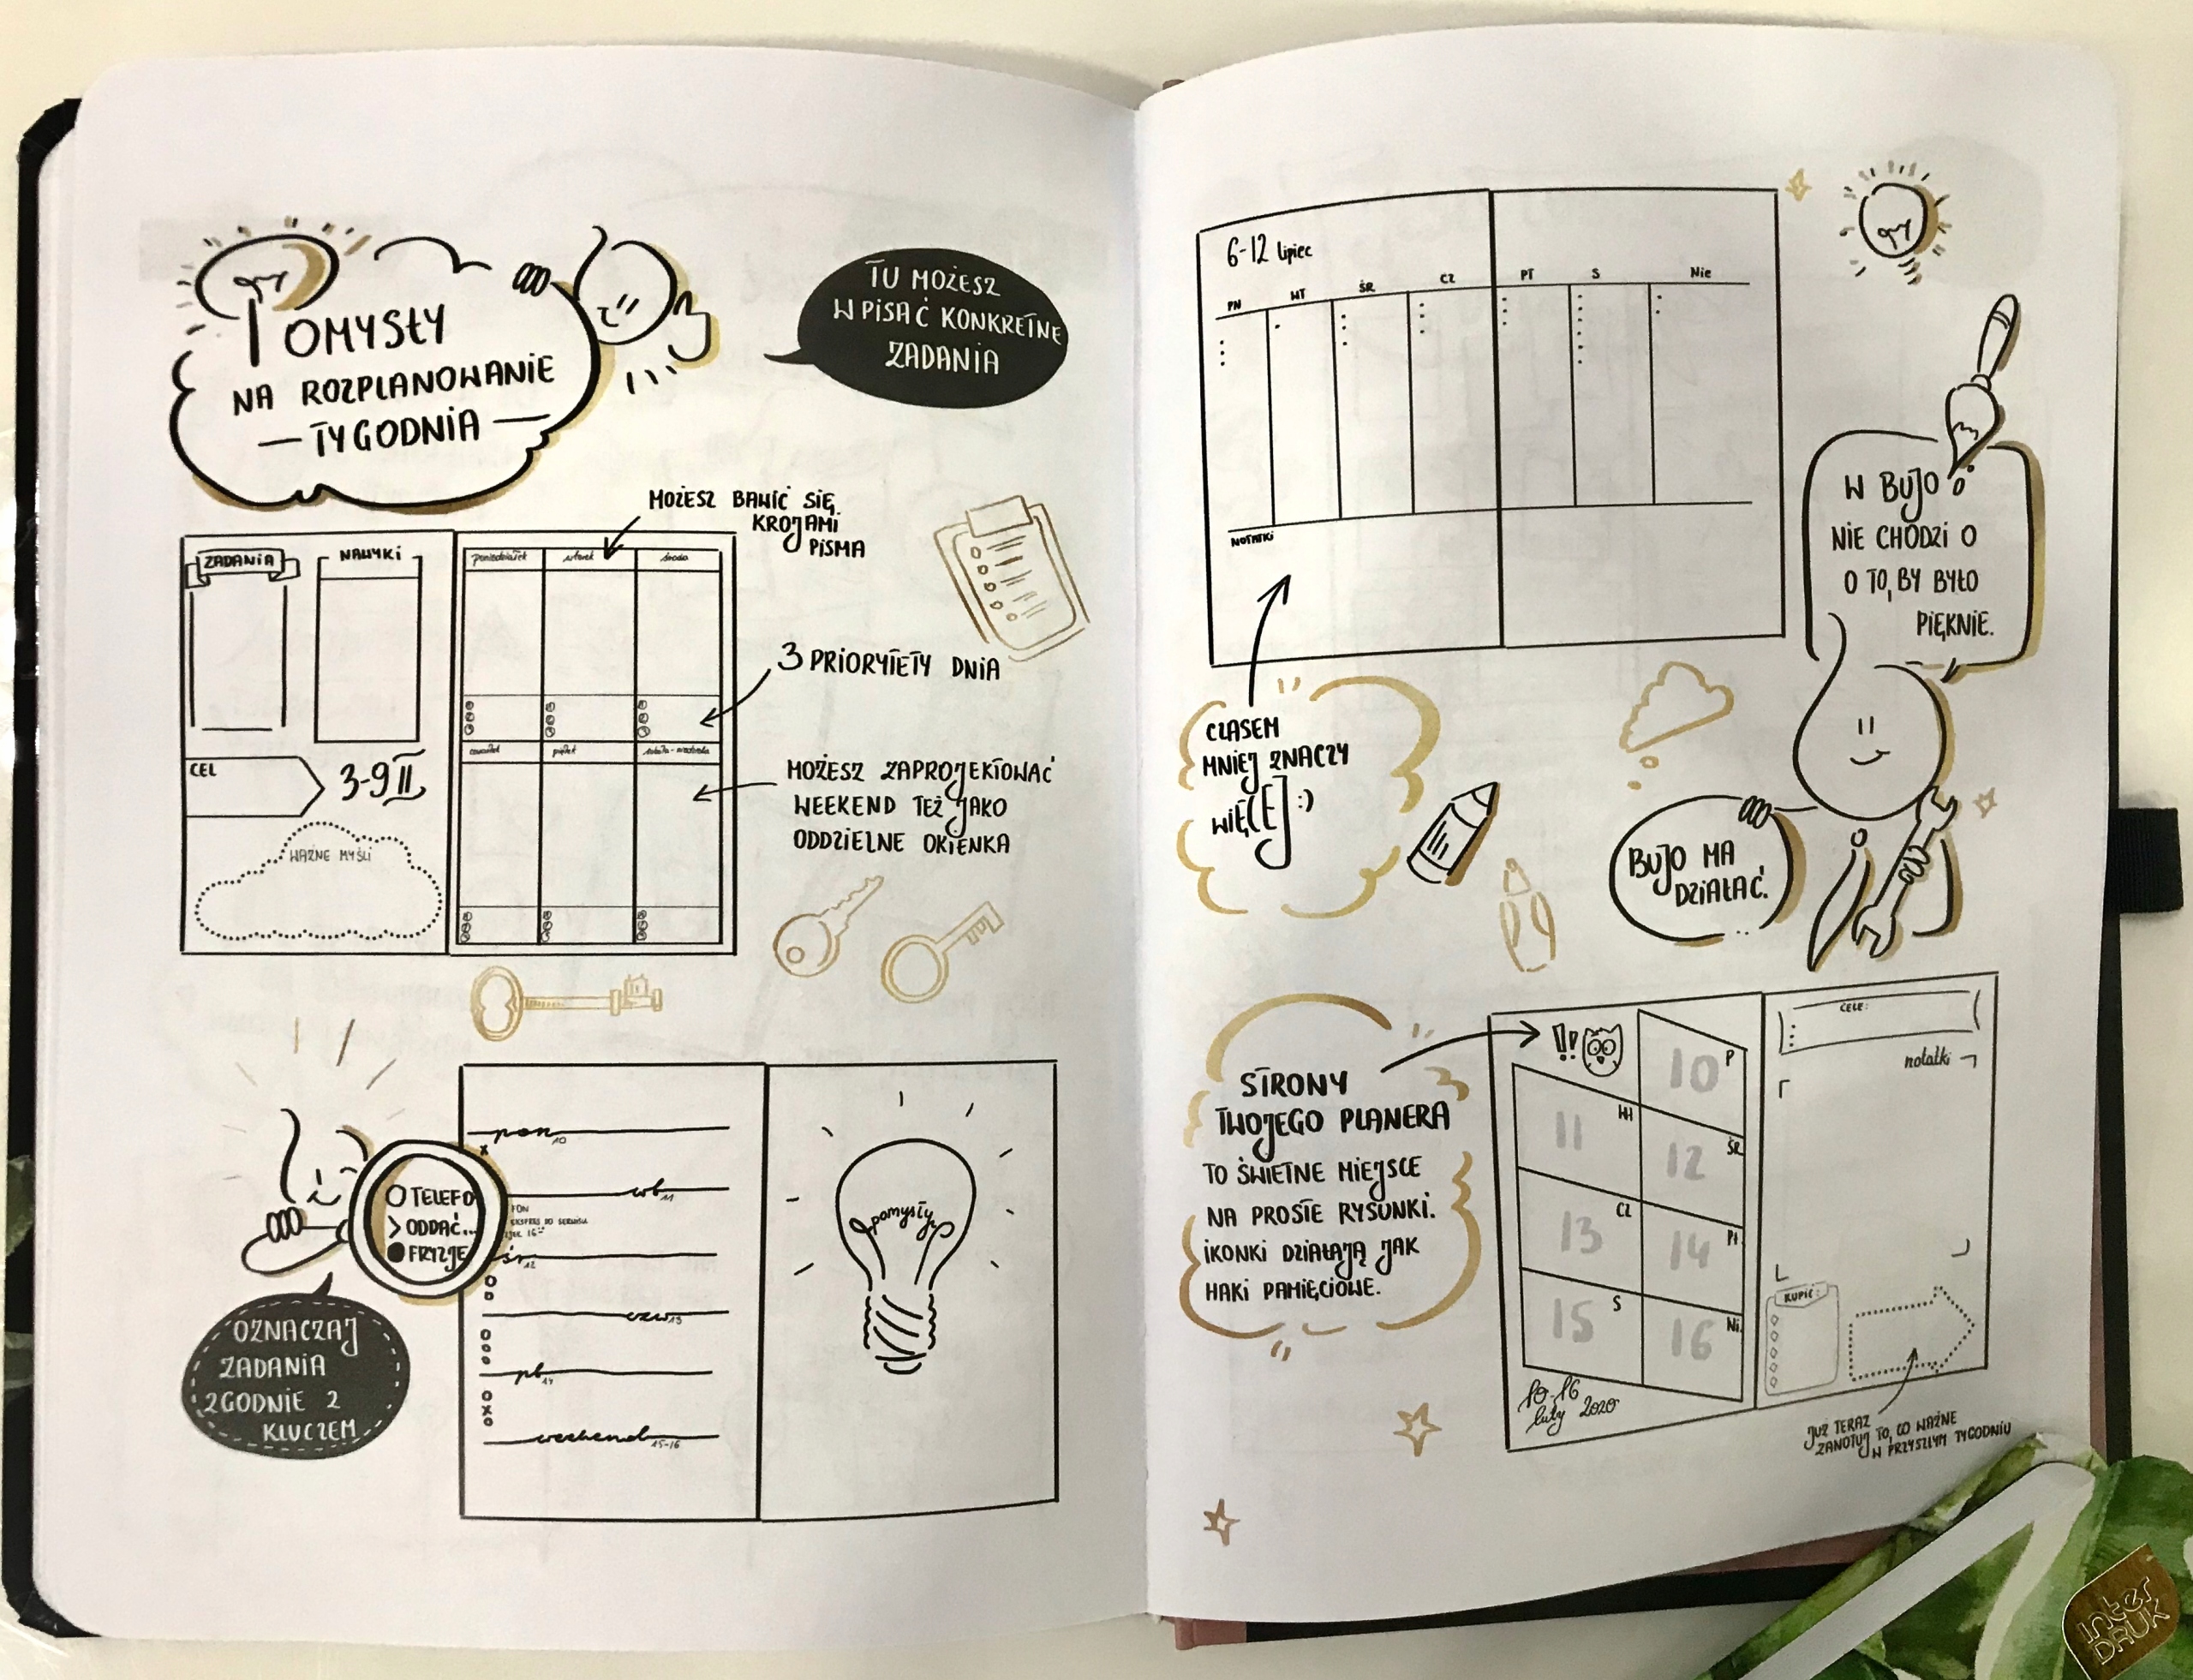 POMYSŁY
NA ROZPLANOWANIE
— TYGODNIA —
TU MOŻESZ
WPISAĆ KONKRETNE
ZADANIA
MOŻESZ BAWIĆ SIĘ
KROJAMI
PISMA
ZADANIA
NAWYKI
poniedziałek
wtorek
środa
3 PRIORYTETY DNIA
czwartek
piątek
sobota - niedziela
CEL
3-9 II
MOŻESZ ZAPROJEKTOWAĆ
WEEKEND TEŻ JAKO
ODDZIELNE OKIENKA
WAŻNE MYŚLI
pon 10
x
wt 11
O TELEFO
> ODDAĆ...
● FRYZJE
FON
EKSPRES DO SERWISU
śr 12
czw 13
pt 14
weekend 15-16
pomysły
OZNACZAJ
ZADANIA
ZGODNIE Z
KLUCZEM
6-12 lipiec
PN
WT
ŚR
CZ
PT
S
Nie
NOTATKI
W BUJO
NIE CHODZI O
O TO, BY BYŁO
PIĘKNIE.
CZASEM
MNIEJ ZNACZY
WIĘCEJ :)
BUJO MA
DZIAŁAĆ.
STRONY
TWOJEGO PLANERA
TO ŚWIETNE MIEJSCE
NA PROSTE RYSUNKI.
IKONKI DZIAŁAJĄ JAK
HAKI PAMIĘCIOWE.
!!
10 P
11 WT
12 ŚR
13 CZ
14 Pt
15 S
16 Ni
10-16
luty 2020
CELE:
notatki
KUPIĆ:
JUŻ TERAZ
ZANOTUJ TO, CO WAŻNE
W PRZYSZŁYM TYGODNIU
inter
DRUK